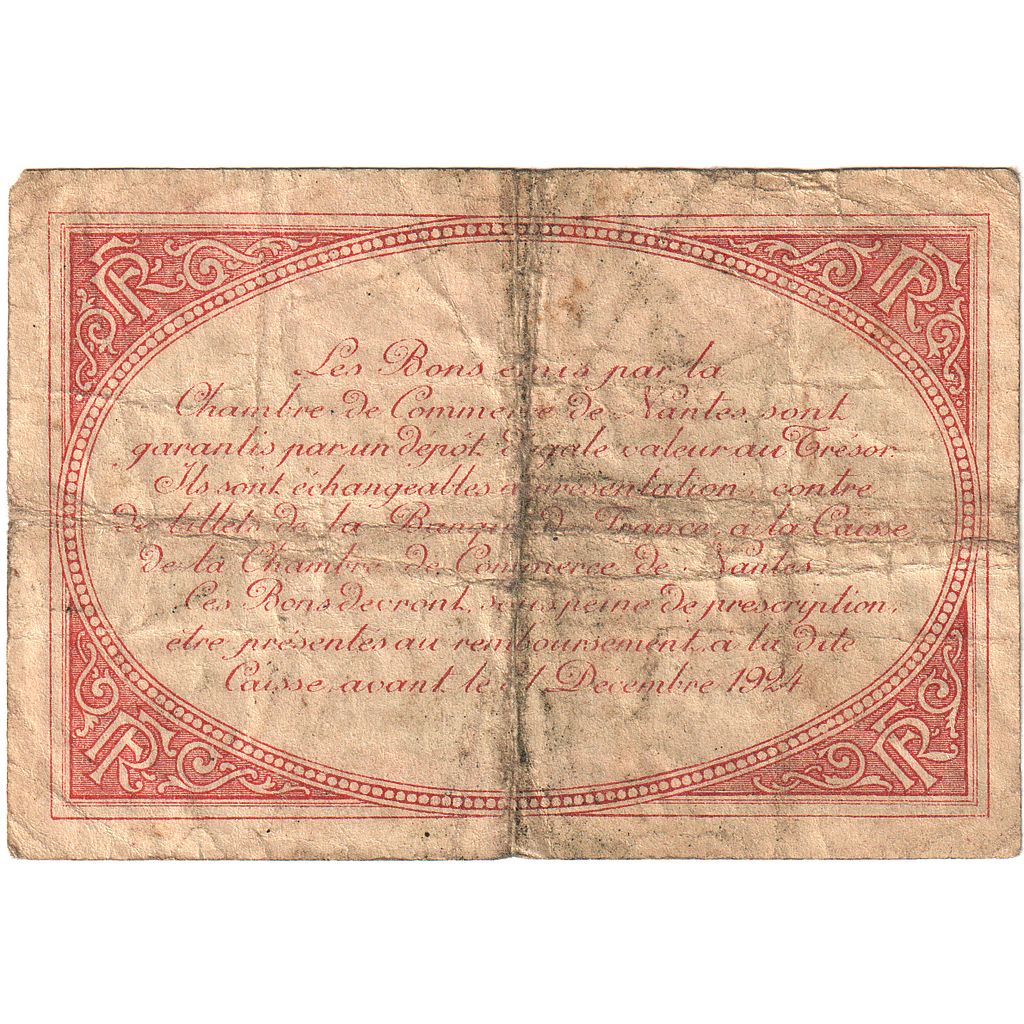 RF
RF
Les Bons émis par la
Chambre de Commerce de Nantes sont
garantis par un dépôt d'égale valeur au Trésor
Ils sont échangeables à présentation, contre
de billets de la Banque de France, à la Caisse
de la Chambre de Commerce de Nantes
Ces Bons devront, sous peine de prescription,
être présentés au remboursement, à la dite
Caisse, avant le Décembre 1924
RF
RF